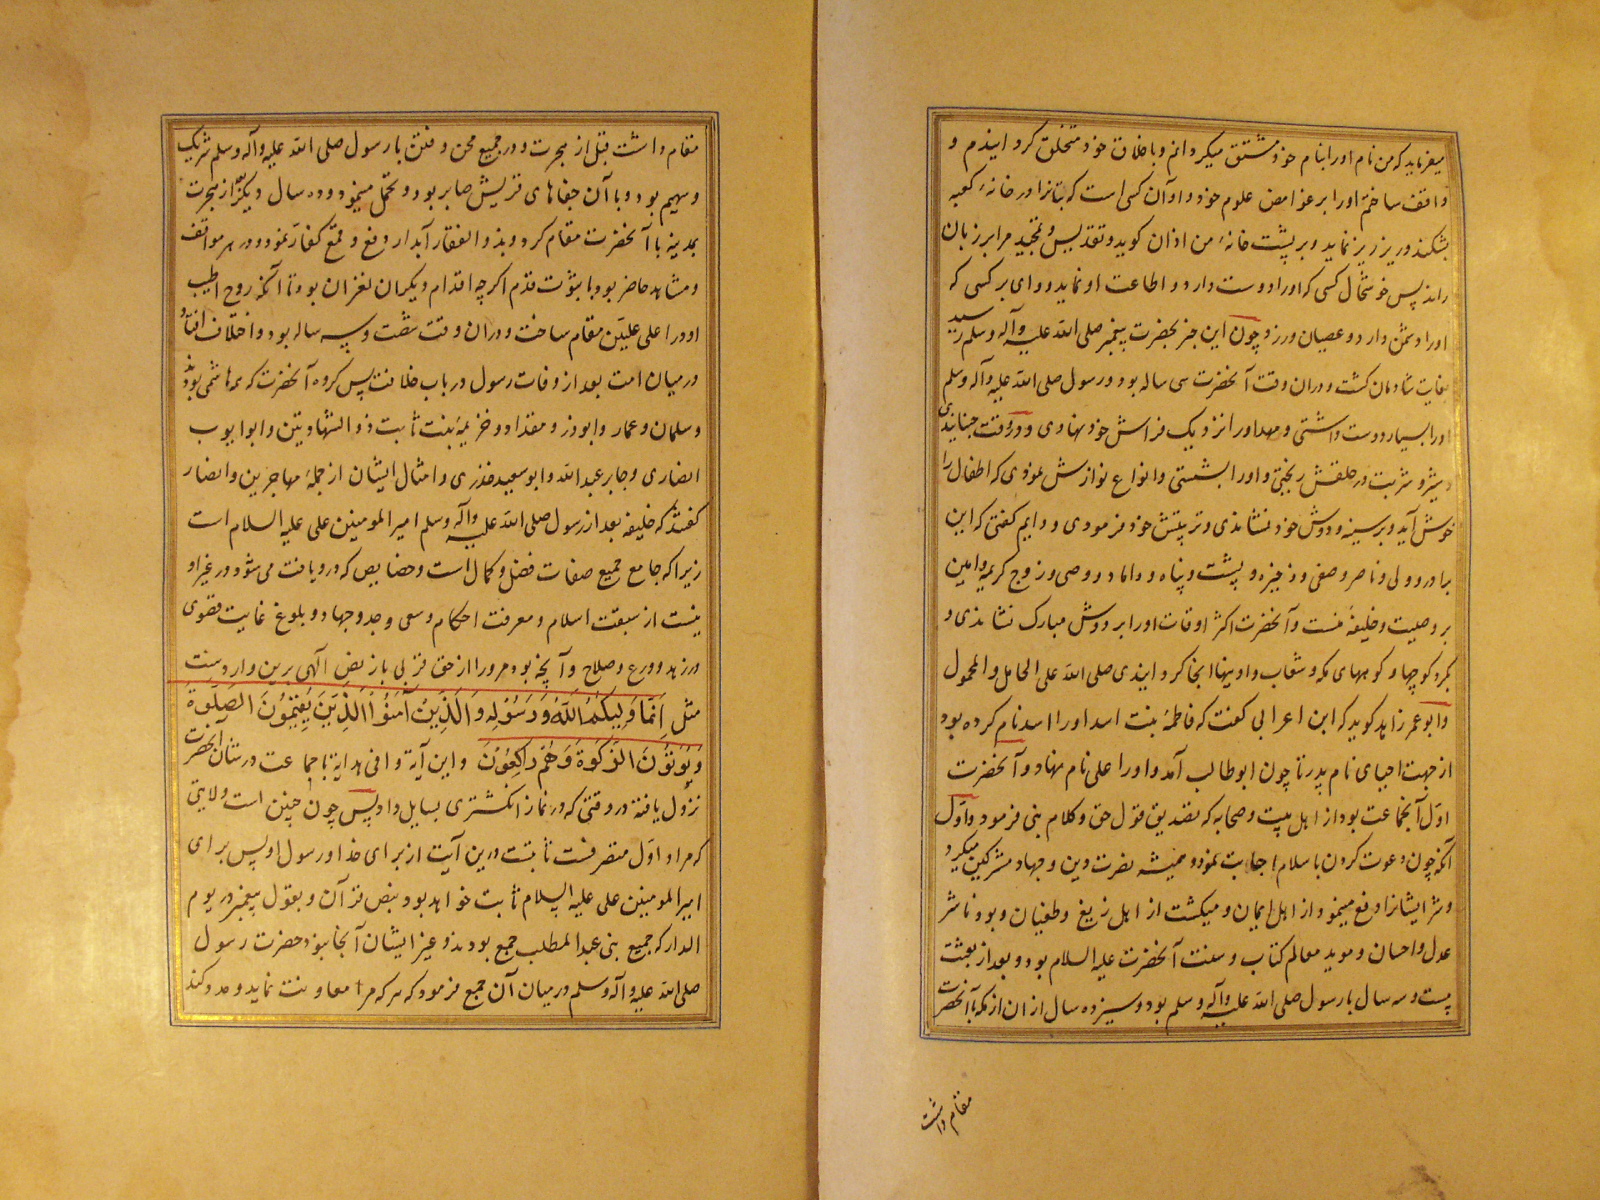 میفرماید که من نام او را بنام خود مشتق میکردانم و باخلاق خود متخلق کردانیدم و
واقف ساختم او را بر غوامض علوم خود و او آن کسی است که بتانرا در خانهٔ کعبه
بشکند و ریز ریز نماید و بر پشت خانهٔ من اذان کوید و تقدیس و تمجید مرا بر زبان
راند پس خوشحال کسی که او را دوست دارد و اطاعت او نماید و وای بر کسی که
او را دشمن دارد و عصیان ورزد و چون این خبر بحضرت پیغمبر صلی الله علیه وآله وسلم رسید
بغایت شادمان کشت و دران وقت آنحضرت سی ساله بود و رسول صلی الله علیه وآله وسلم
او را بسیار دوست داشتی و مهد او را نزدیک فراش خود نهادی و در وقت جنبانیدی
و شیر و شربت در حلقش ریختی و او را بشستی و انواع نوازش نمودی که اطفال را
خوش آید و بر سینه و دوش خود نشاندی و تربیتش خود فرمودی و دایم کفتی که این
برادر و ولی و ناصر و صفی و ذخیره و پشت و پناه و داماد و وصی و زوج کریمه و امین
بر وصیت و خلیفهٔ منست و آنحضرت اکثر اوقات او را بر دوش مبارک نشاندی و
بکرد کوچها و کوههای مکه و شعاب و اودیتها کردانیدی صلی الله علی الحامل والمحمول
و ابو عمر زاهد کوید که ابن اعرابی کفت که فاطمهٔ بنت اسد او را اسد نام کرده بود
از جهت احیای نام پدر تا چون ابوطالب آمد و او را علی نام نهاد و آنحضرت
اول آنجماعت بود از اهل بیت و صحابه که تصدیق قول حق و کلام نبی فرمود و اول
آنکه چون دعوت کردن باسلام اجابت نمود و همیشه نصرت دین و جهاد مشرکین میکرد
و شر ایشانرا دفع مینمود از اهل ایمان و میکشت از اهل زیغ و طغیان و بود ناشر
عدل و احسان و موید معالم کتاب و سنت آنحضرت علیه السلام بود و بعد از بعثت
بیست و سه سال با رسول صلی الله علیه وآله وسلم بود و سیزده سال ازان از مکه با آنحضرت
مقام داشت
مقام داشت قبل از هجرت و در جمیع محن و فتن با رسول صلی الله علیه وآله وسلم شریک
و سهیم بود و با آن جفاهای قریش صابر بود و تحمل مینمود و ده سال دیکر از هجرت
بمدینه با آنحضرت مقام کرد و بذوالفقار آبدار دفع و قمع کفار نمود و در هر مواقف
و مشاهد حاضر بود با ثبوت قدم اکرچه اقدام دیکران لغزان بود تا آنکه روح اطیب
او در اعلی علیین مقام ساخت و دران وقت شصت و سه ساله بود و اختلاف افتاد
در میان امت بعد از وفات رسول در باب خلافت پس کروه آنحضرت که همه هاشمی بودند
و سلمان و عمار و ابوذر و مقداد و خزیمهٔ بنت ثابت ذو الشهادتین و ابو ایوب
انصاری و جابر عبدالله و ابو سعید خذری و امثال ایشان از جملهٔ مهاجرین و انصار
کفتند که خلیفه بعد از رسول صلی الله علیه وآله وسلم امیرالمومنین علی علیه السلام است
زیرا که جامع جمیع صفات فضل و کمال است و خصایص که در او یافت می شود در غیر او
نیست از سبقت اسلام و معرفت احکام و سعی و جد و جهاد و بلوغ غایت قصوی
در زهد و ورع و صلاح و آنچه بود مر او را از حق قربی باز نص الهی برین وارد است
مثل اِنَّمَا وَلِیُّکُمُ اللّهُ وَرَسُولُهُ وَالَّذِینَ آمَنُوا الَّذِینَ یُقِیمُونَ الصَّلَوةَ
وَیُؤتُونَ الزَّکَوةَ وَهُم رَاکِعُونَ و این آیهٔ وافی هدایه باجماعت در شان آنحضرت
نزول یافته در وقتی که در نماز انکشتری بسایل داد پس چون چنین است ولایتی
که مراد اول متصرفست ثابتست درین آیت از برای خدا و رسول او پس برای
امیرالمومنین علی علیه السلام ثابت خواهد بود بنص قرآن و بقول پیغمبر در یوم
الدار که جمیع بنی عبدالمطلب جمع بودند و غیر ایشان آنجا نبود حضرت رسول
صلی الله علیه وآله وسلم در میان آن جمع فرمود که هر که مرا معاونت نماید و مدد کند